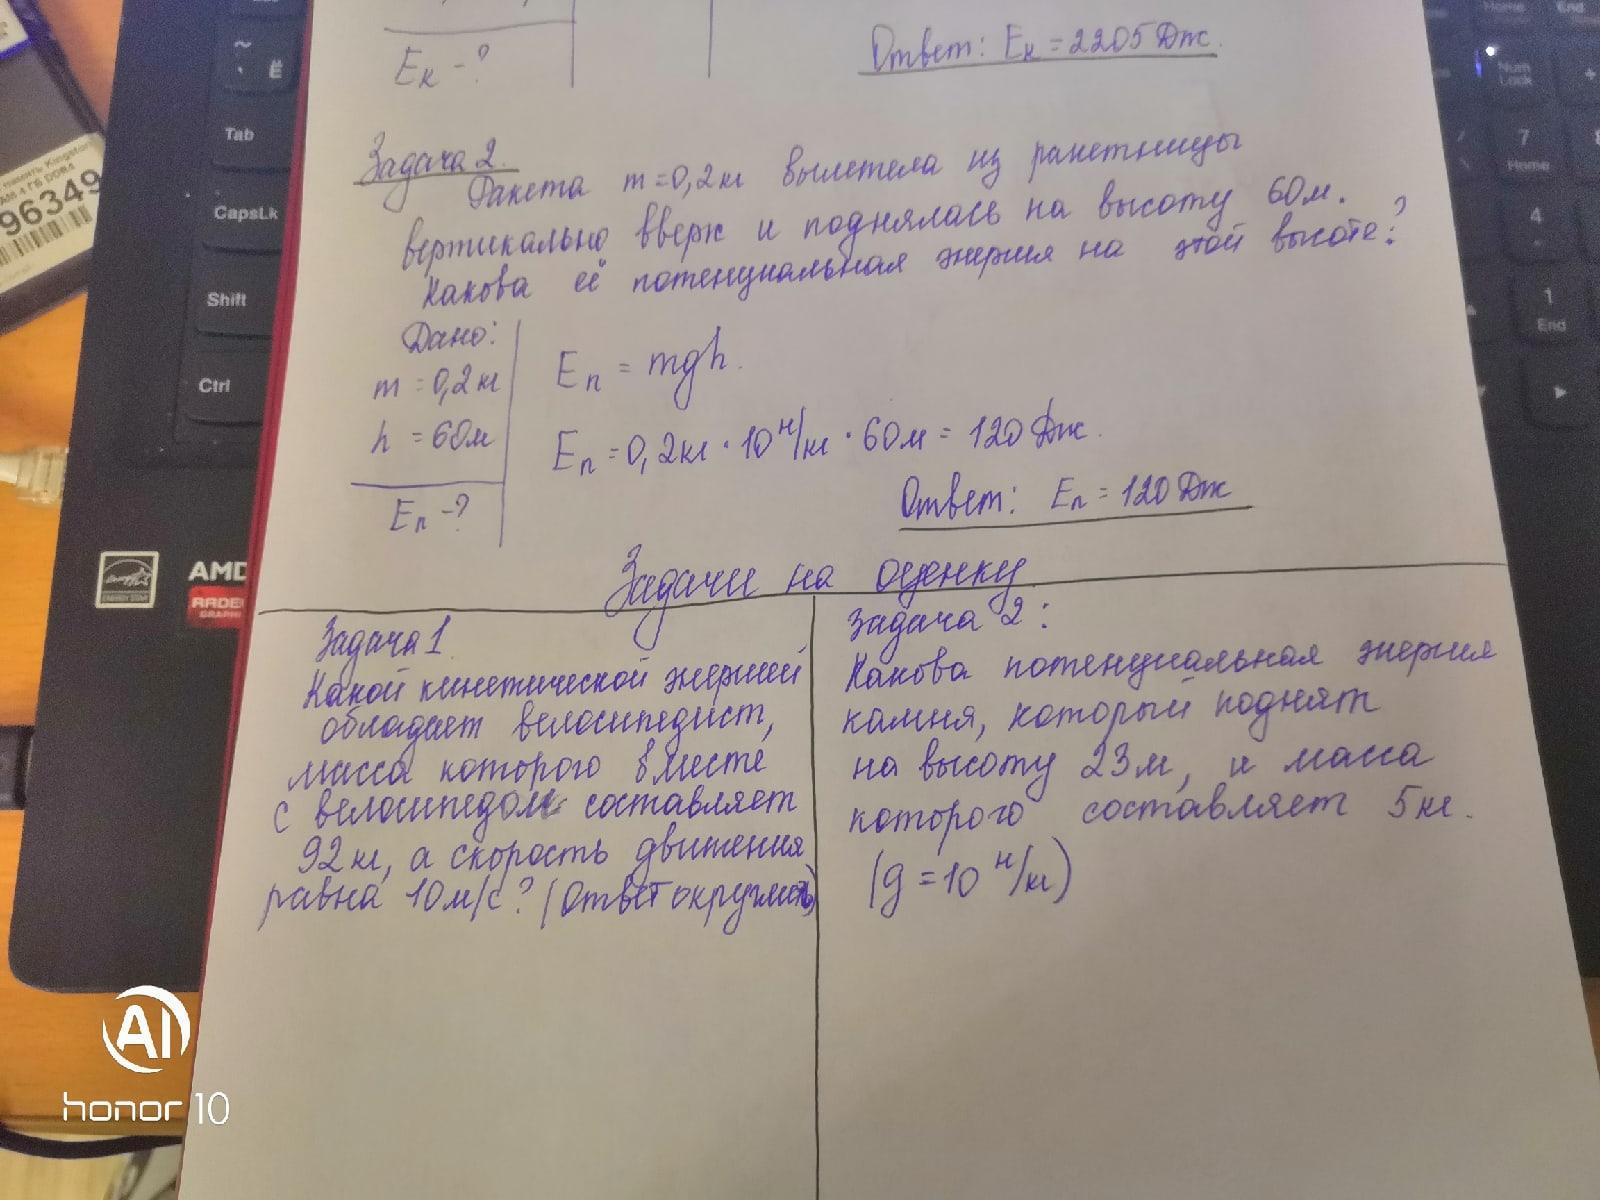 Eк -?
Ответ: Eк = 2205 Дж.
Задача 2.
Ракета m = 0,2 кг вылетела из ракетницы
вертикально вверх и поднялась на высоту 60 м.
Какова её потенциальная энергия на этой высоте?
Дано:
m = 0,2 кг
h = 60 м
Eп -?
Eп = mgh.
Eп = 0,2 кг · 10 н/кг · 60 м = 120 Дж.
Ответ: Eп = 120 Дж
Задачи на оценку.
Задача 1.
Какой кинетической энергией
обладает велосипедист,
масса которого вместе
с велосипедом составляет
92 кг, а скорость движения
равна 10 м/с? (Ответ округлить)
Задача 2:
Какова потенциальная энергия
камня, который поднят
на высоту 23 м, и масса
которого составляет 5 кг.
(g = 10 н/кг)
~
` Ё
Tab
CapsLk
Shift
Ctrl
ENERGY STAR
AMD
Home
End
Num
Lock
7
Home
4
1
End
память Kingston
96349
AI
honor 10